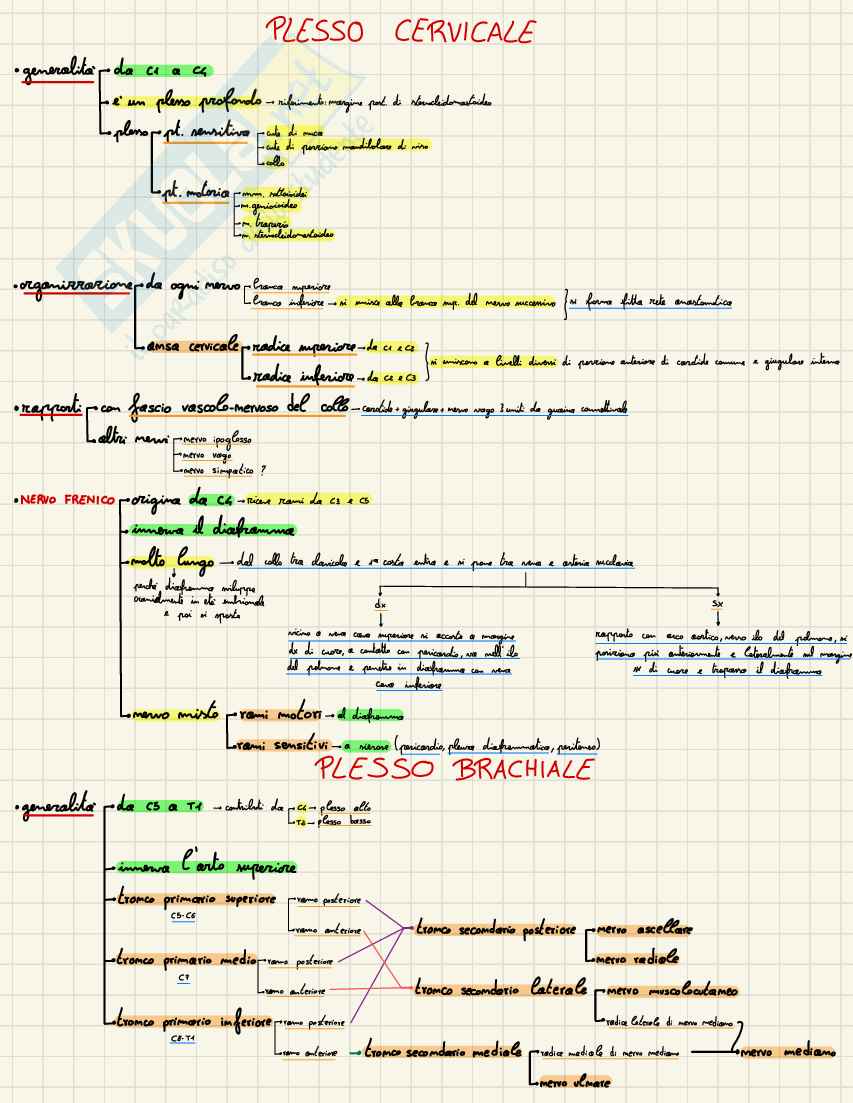 PLESSO CERVICALE
• generalità
da C1 a C4
è un plesso profondo → riferimento: margine post. di sternocleidomastoideo
plesso
pt. sensitiva
cute di nuca
cute di porzione mandibolare di viso
collo
pt. motoria
mm. sottoioidei
m. genioioideo
m. trapezio
m. sternocleidomastoideo
• organizzazione
da ogni nervo
branca superiore
branca inferiore → si unisce alla branca sup. del nervo successivo
si forma fitta rete anastomotica
ansa cervicale
radice superiore → da C1 e C2
radice inferiore → da C2 e C3
si uniscono a livelli diversi di porzione anteriore di carotide comune e giugulare interna
• rapporti
con fascio vascolo-nervoso del collo → carotide + giugulare + nervo vago uniti da guaina connettivale
altri nervi
nervo ipoglosso
nervo vago
nervo simpatico ?
• NERVO FRENICO
origina da C4 → riceve rami da C3 e C5
innerva il diaframma
molto lungo → dal collo tra clavicola e 1ª costa entra e si pone tra vena e arteria succlavia
perché diaframma sviluppa
cranialmente in età embrionale
e poi si sposta
dx
vicino a vena cava superiore si accosta a margine
dx di cuore, a contatto con pericardio, va nell'ilo
del polmone e penetra in diaframma con vena
cava inferiore
sx
rapporto con arco aortico, verso ilo del polmone, si
posiziona più anteriormente e lateralmente sul margine
sx di cuore e trapassa il diaframma
nervo misto
rami motori → al diaframma
rami sensitivi → a sierose (pericardio, pleura diaframmatica, peritoneo)
PLESSO BRACHIALE
• generalità
da C5 a T1 → contributi da
C4 → plesso alto
T2 → plesso basso
innerva l'arto superiore
tronco primario superiore
C5-C6
ramo posteriore
ramo anteriore
tronco primario medio
C7
ramo posteriore
ramo anteriore
tronco primario inferiore
C8-T1
ramo posteriore
ramo anteriore
tronco secondario posteriore
nervo ascellare
nervo radiale
tronco secondario laterale
nervo muscolocutaneo
radice laterale di nervo mediano
tronco secondario mediale
radice mediale di nervo mediano
nervo mediano
nervo ulnare
SKUOLA.net
il paradiso dello studente